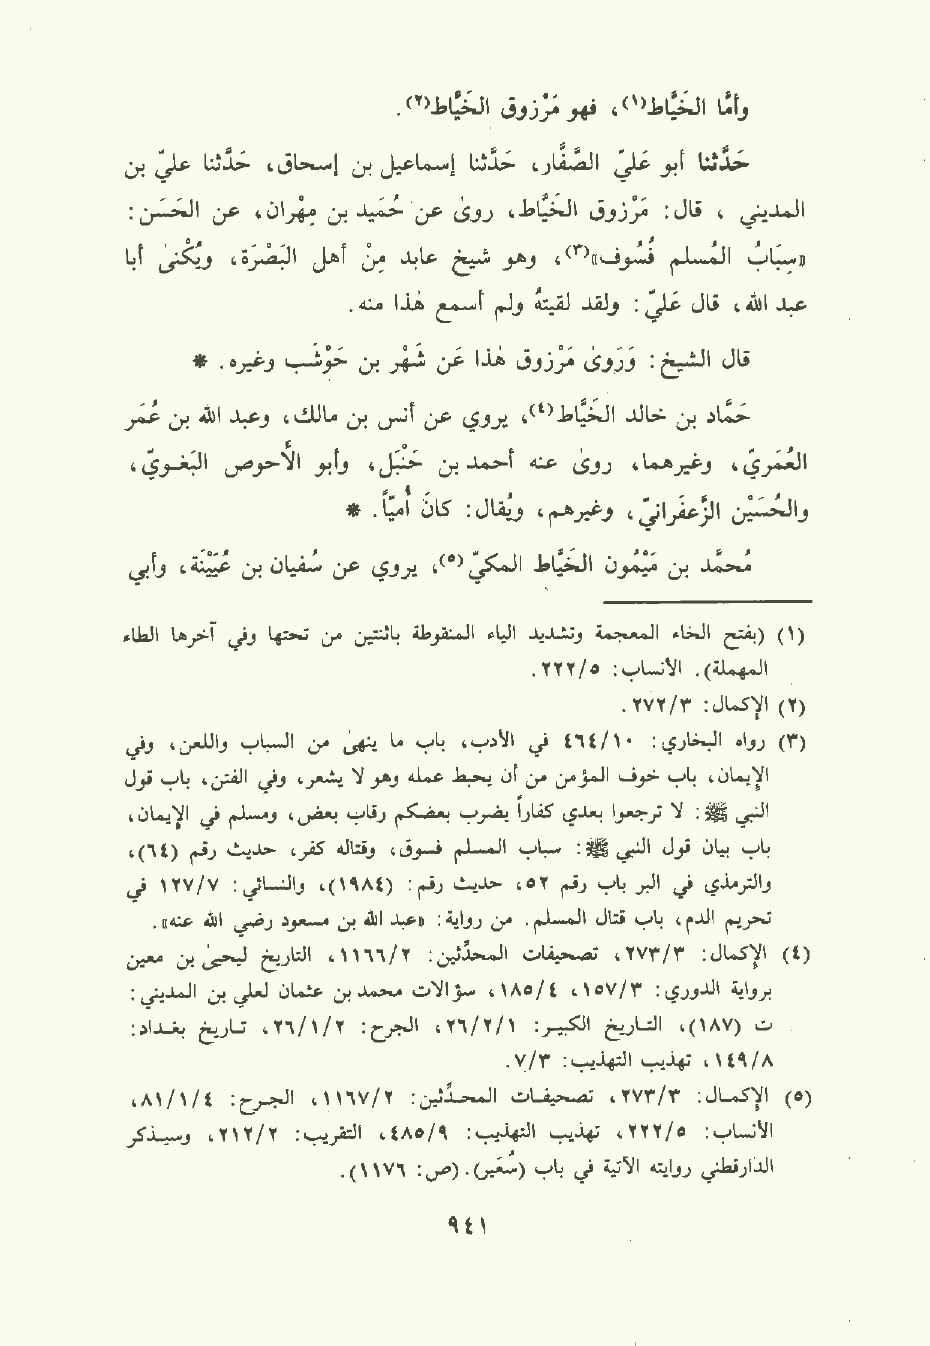 وأمَّا الخَيَّاط(١)، فهو مَرْزوق الخَيَّاط(٢).
حَدَّثنا أبو عَليّ الصَّفَّار، حَدَّثنا إسماعيل بن إسحاق، حَدَّثنا عليّ بن
المديني ، قال: مَرْزوق الخَيَّاط، روىٰ عن حُمَيد بن مِهْران، عن الحَسَن:
«سِبَابُ المُسلم فُسُوف»(٣)، وهو شيخ عابد مِنْ أهل البَصْرَة، ويُكْنىٰ أبا
عبد الله، قال عَليّ: ولقد لقيتهُ ولم أسمع هذا منه.
قال الشيخ: وَرَوىٰ مَرْزوق هذا عَن شَهْر بن حَوْشَب وغيره. *
حَمَّاد بن خالد الخَيَّاط(٤)، يروي عن أنس بن مالك، وعبد الله بن عُمَر
العُمَريّ، وغيرهما، روىٰ عنه أحمد بن حَنْبَل، وأبو الأحوص البَغَويّ،
والحُسَيْن الزَّعفرانيّ، وغيرهم، ويُقال: كانَ أُميّاً. *
مُحمَّد بن مَيْمُون الخَيَّاط المكيّ(٥)، يروي عن سُفيان بن عُيَيْنَة، وأبي
(١) (بفتح الخاء المعجمة وتشديد الياء المنقوطة باثنتين من تحتها وفي آخرها الطاء
المهملة). الأنساب: ٢٢٢/٥.
(٢) الإكمال: ٢٧٢/٣.
(٣) رواه البخاري: ٤٦٤/١٠ في الأدب، باب ما ينهىٰ من السباب واللعن، وفي
الإيمان، باب خوف المؤمن من أن يحبط عمله وهو لا يشعر، وفي الفتن، باب قول
النبي ﷺ: لا ترجعوا بعدي كفاراً يضرب بعضكم رقاب بعض، ومسلم في الإيمان،
باب بيان قول النبي ﷺ: سباب المسلم فسوق، وقتاله كفر، حديث رقم (٦٤)،
والترمذي في البر باب رقم ٥٢، حديث رقم: (١٩٨٤)، والنسائي: ١٢٧/٧ في
تحريم الدم، باب قتال المسلم. من رواية: «عبد الله بن مسعود رضي الله عنه».
(٤) الإكمال: ٢٧٣/٣، تصحيفات المحدِّثين: ١١٦٦/٢، التاريخ ليحيىٰ بن معين
برواية الدوري: ١٥٧/٣، ١٨٥/٤، سؤالات محمد بن عثمان لعلي بن المديني:
ت (١٨٧)، التاريخ الكبير: ٢٦/٢/١، الجرح: ٢٦/١/٢، تاريخ بغداد:
١٤٩/٨، تهذيب التهذيب: ٧/٣.
(٥) الإكمال: ٢٧٣/٣، تصحيفات المحدِّثين: ١١٦٧/٢، الجرح: ٨١/١/٤،
الأنساب: ٢٢٢/٥، تهذيب التهذيب: ٤٨٥/٩، التقريب: ٢١٢/٢، وسيذكر
الدارقطني روايته الآتية في باب (سُعَير). (ص: ١١٧٦).
٩٤١